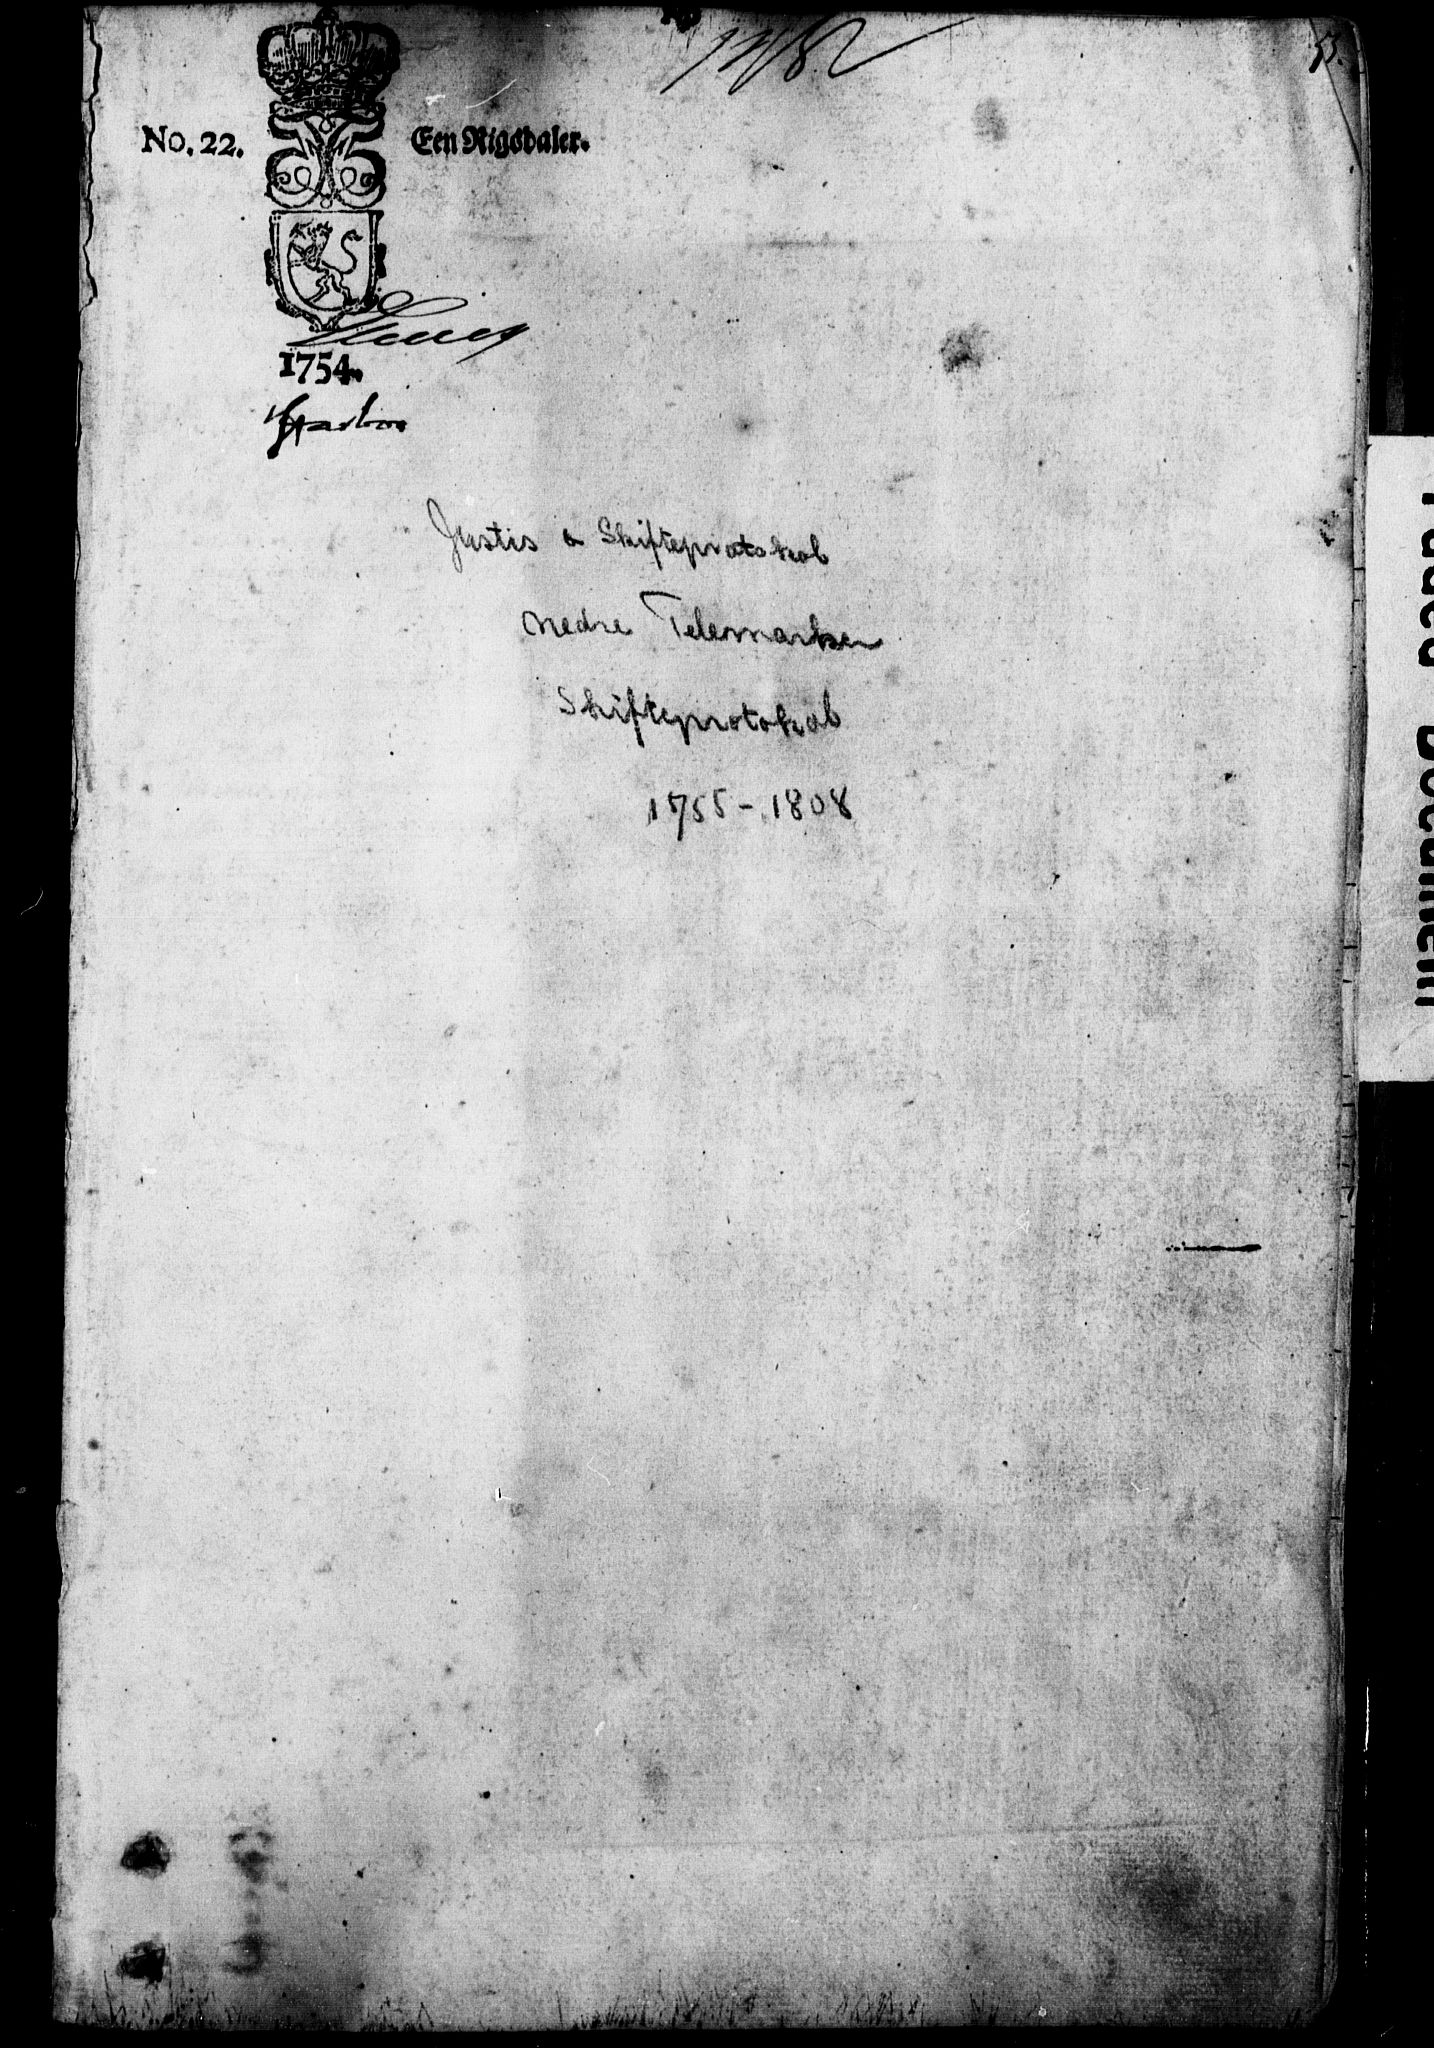 53.
No. 22. Een Rigsdaler.
1754.
Justis & Skifteprotokol
nedre Telemarken
Skifteprotokol
1755 - 1808
Faded Document